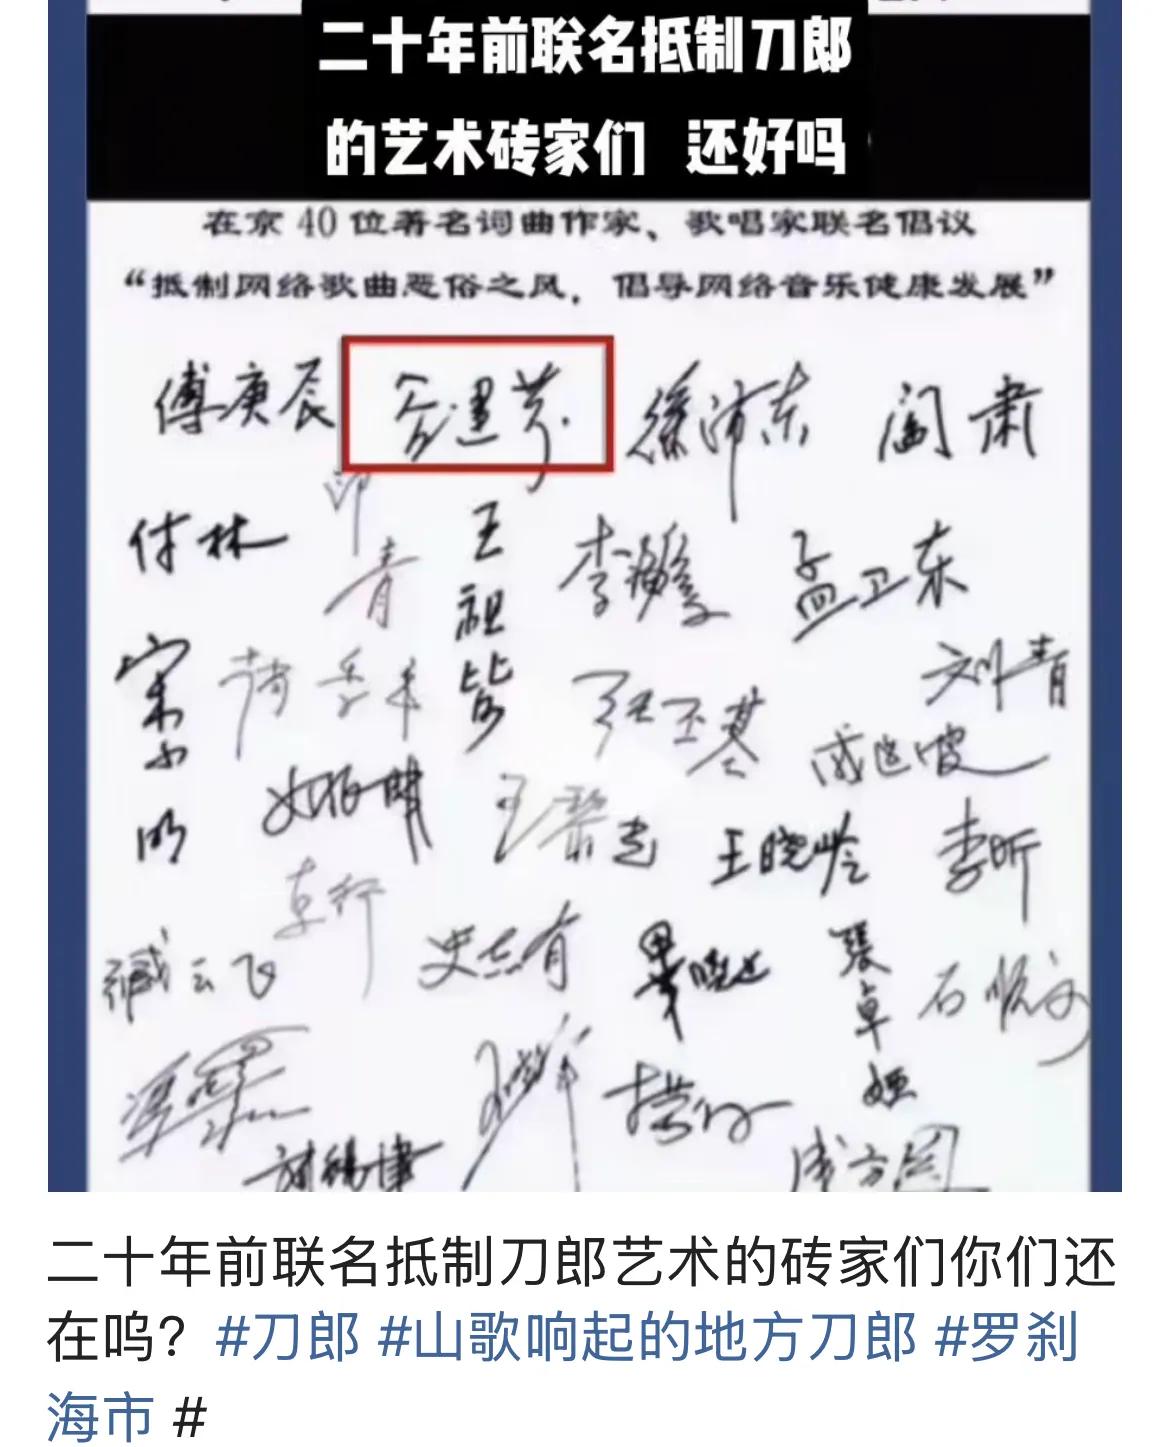 二十年前联名抵制刀郎
的艺术砖家们 还好吗
在京40位著名词曲作家、歌唱家联名倡议
“抵制网络歌曲恶俗之风，倡导网络音乐健康发展”
傅庚辰 谷建芬 徐沛东 阎肃
付林 印青 王祖皆 李海鹰 孟卫东
宋小明 张丕基 成方圆 刘青
王晓岭 李昕
臧云飞 史志有 张卓娅 石顺义
二十年前联名抵制刀郎艺术的砖家们你们还
在呜？#刀郎 #山歌响起的地方刀郎 #罗刹
海市 #